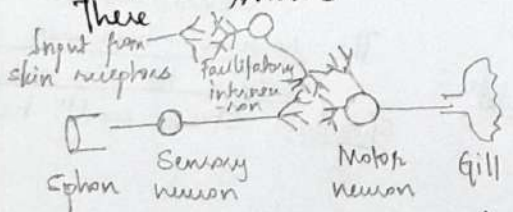 There
Input from
skin receptors
Facilitatory
interneu
-ron
Siphon
Sensory
neuron
Motor
neuron
Gill